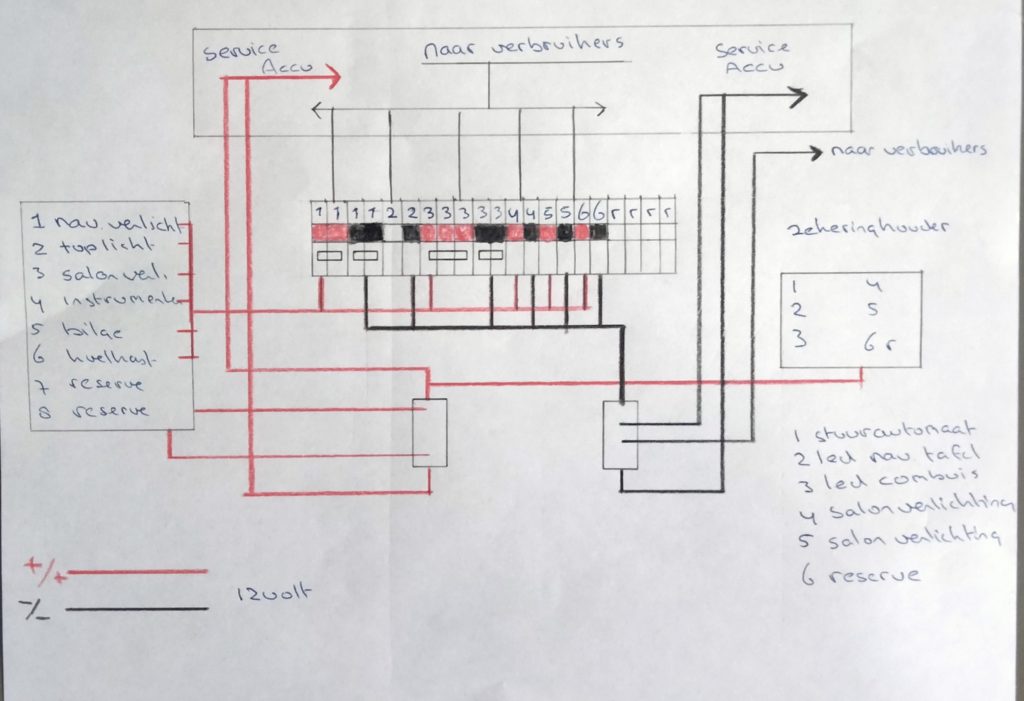 service
Accu
naar verbruikers
service
Accu
naar verbruikers
1 1 1 1 2 2 3 3 3 3 3 4 4 5 5 6 6 r r r r
1 nav. verlicht
2 toplicht
3 salon verl.
4 instrumenten
5 bilge
6 koelkast
7 reserve
8 reserve
zekeringhouder
1 4
2 5
3 6 r
1 stuurautomaat
2 led nav. tafel
3 led combuis
4 salon verlichting
5 salon verlichting
6 reserve
+/+
-/-
12volt